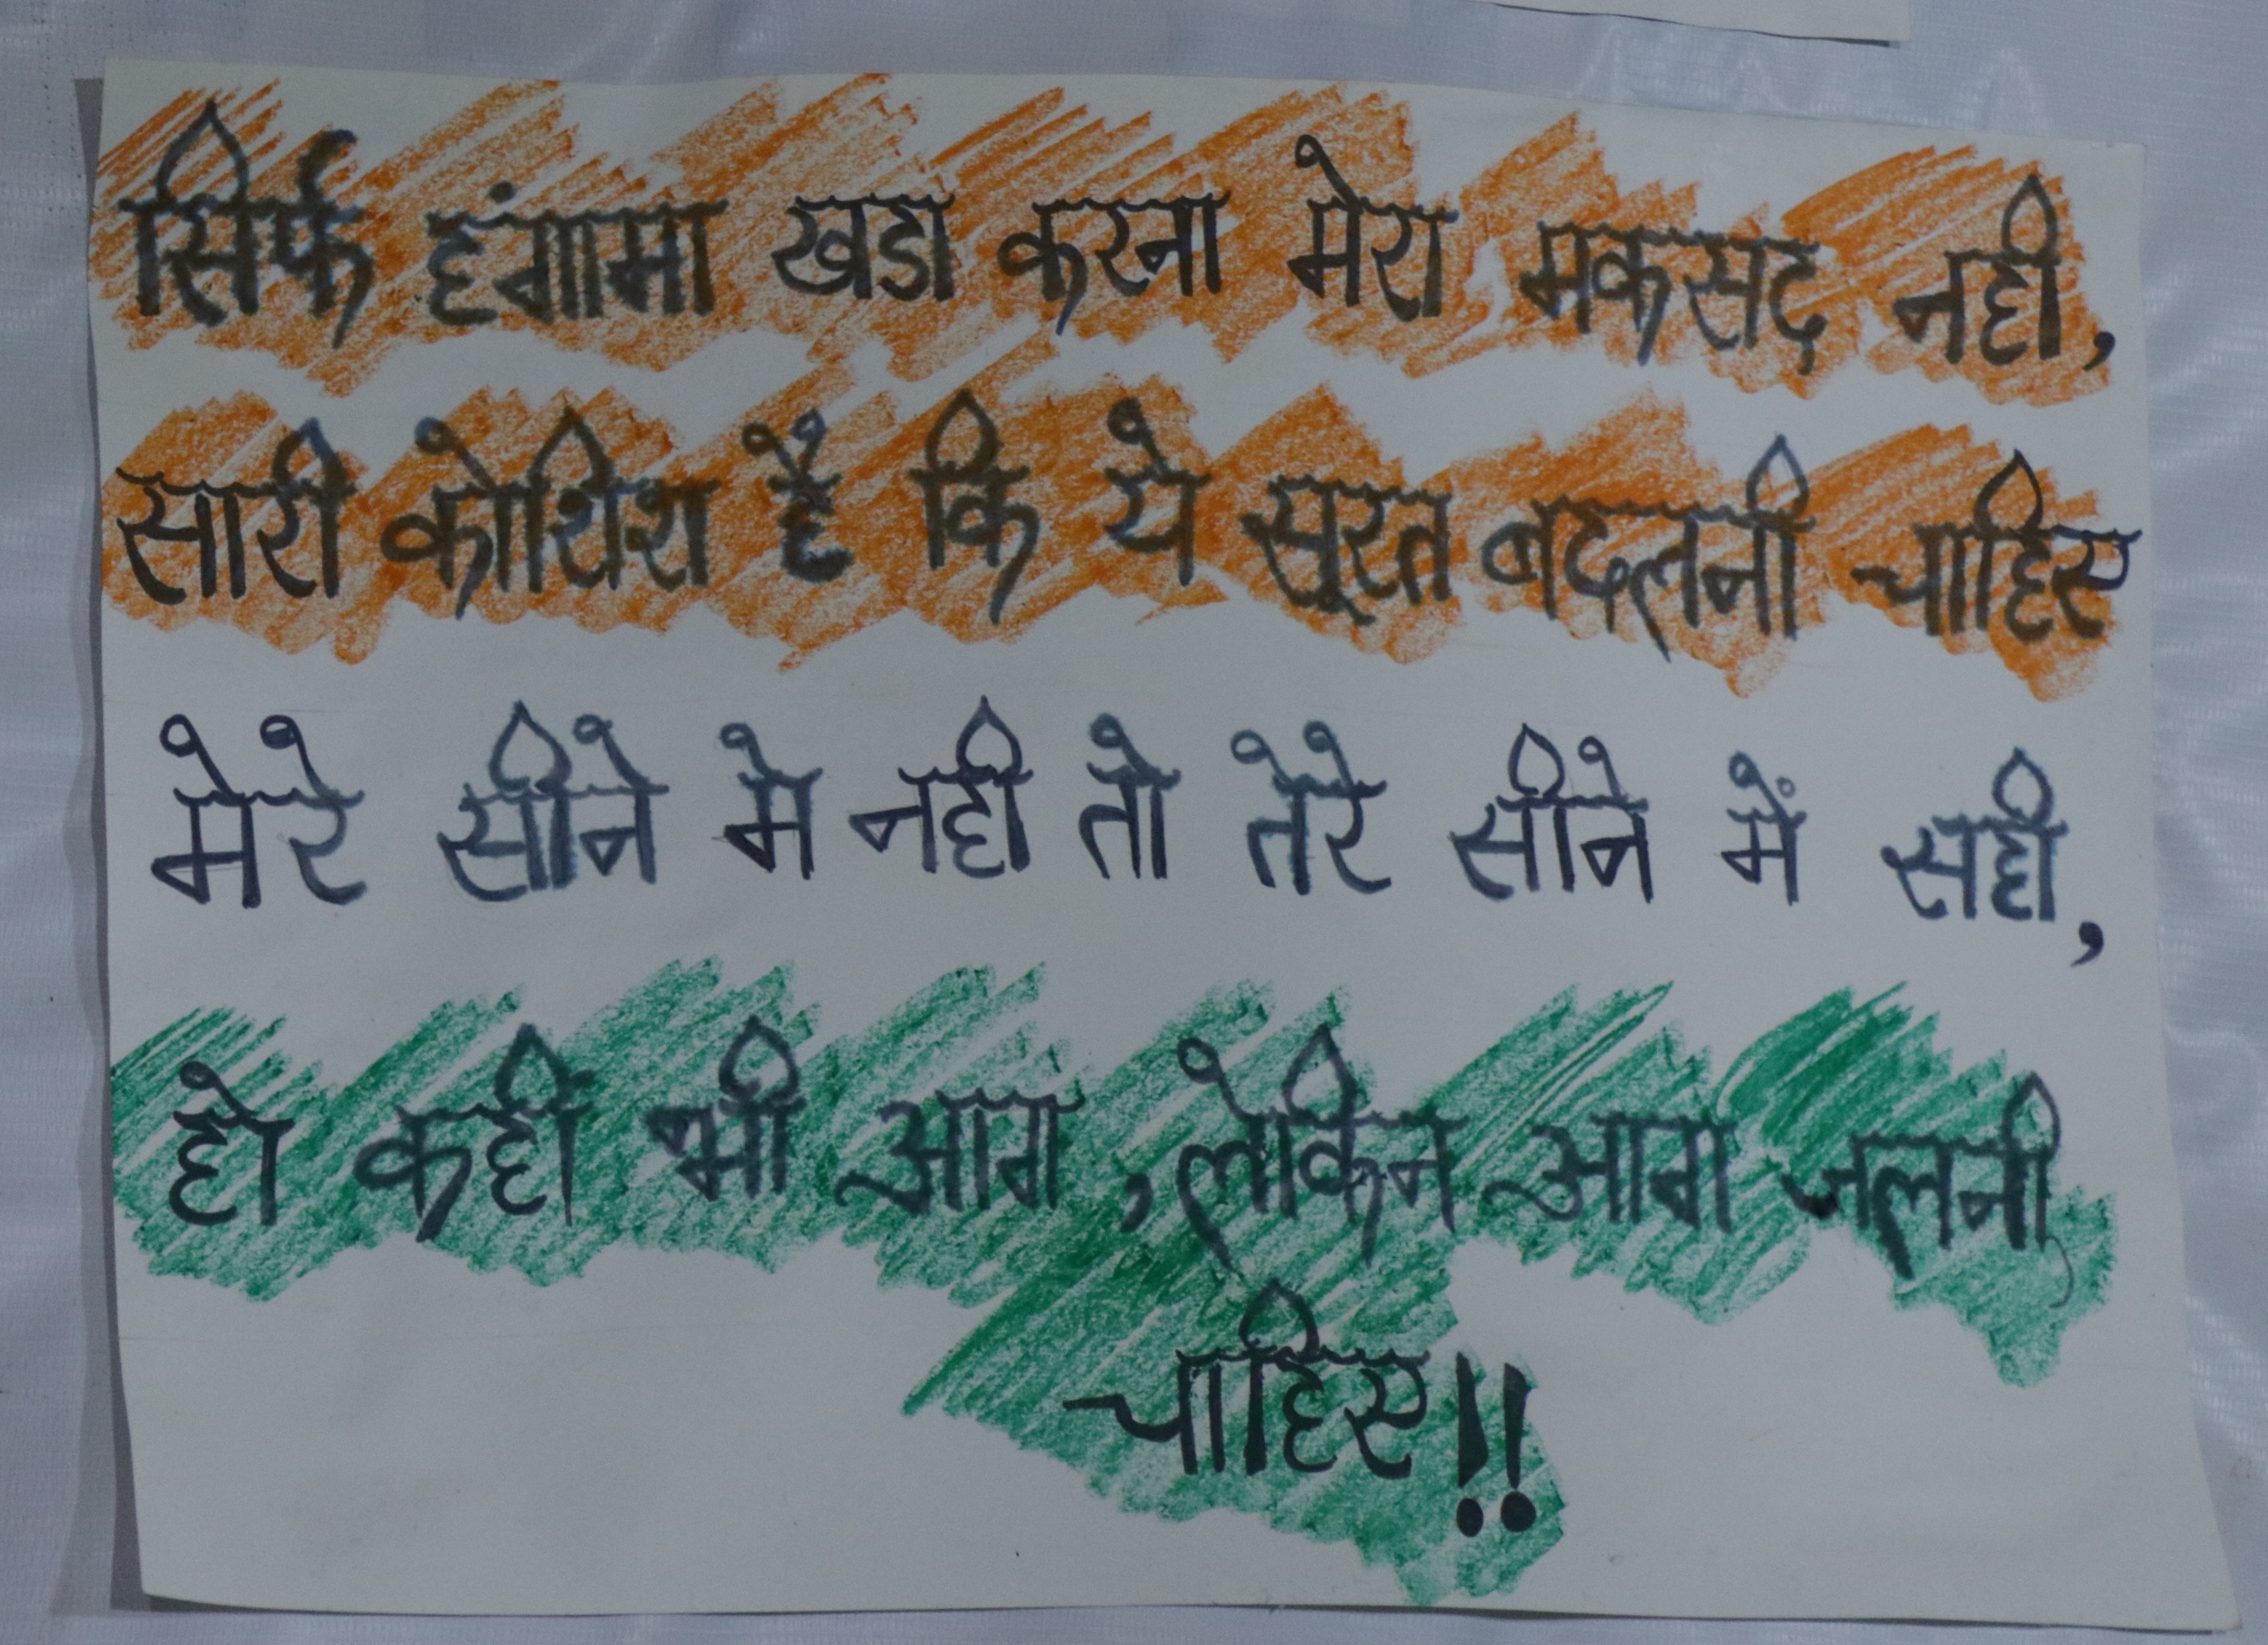 सिर्फ हंगामा खडा करना मेरा मकसद नही,
सारी कोशिश है कि ये सूरत बदलनी चाहिए
मेरे सीने मे नही तो तेरे सीने में सही,
हो कही भी आग, लेकिन आग जलनी
चाहिए!!